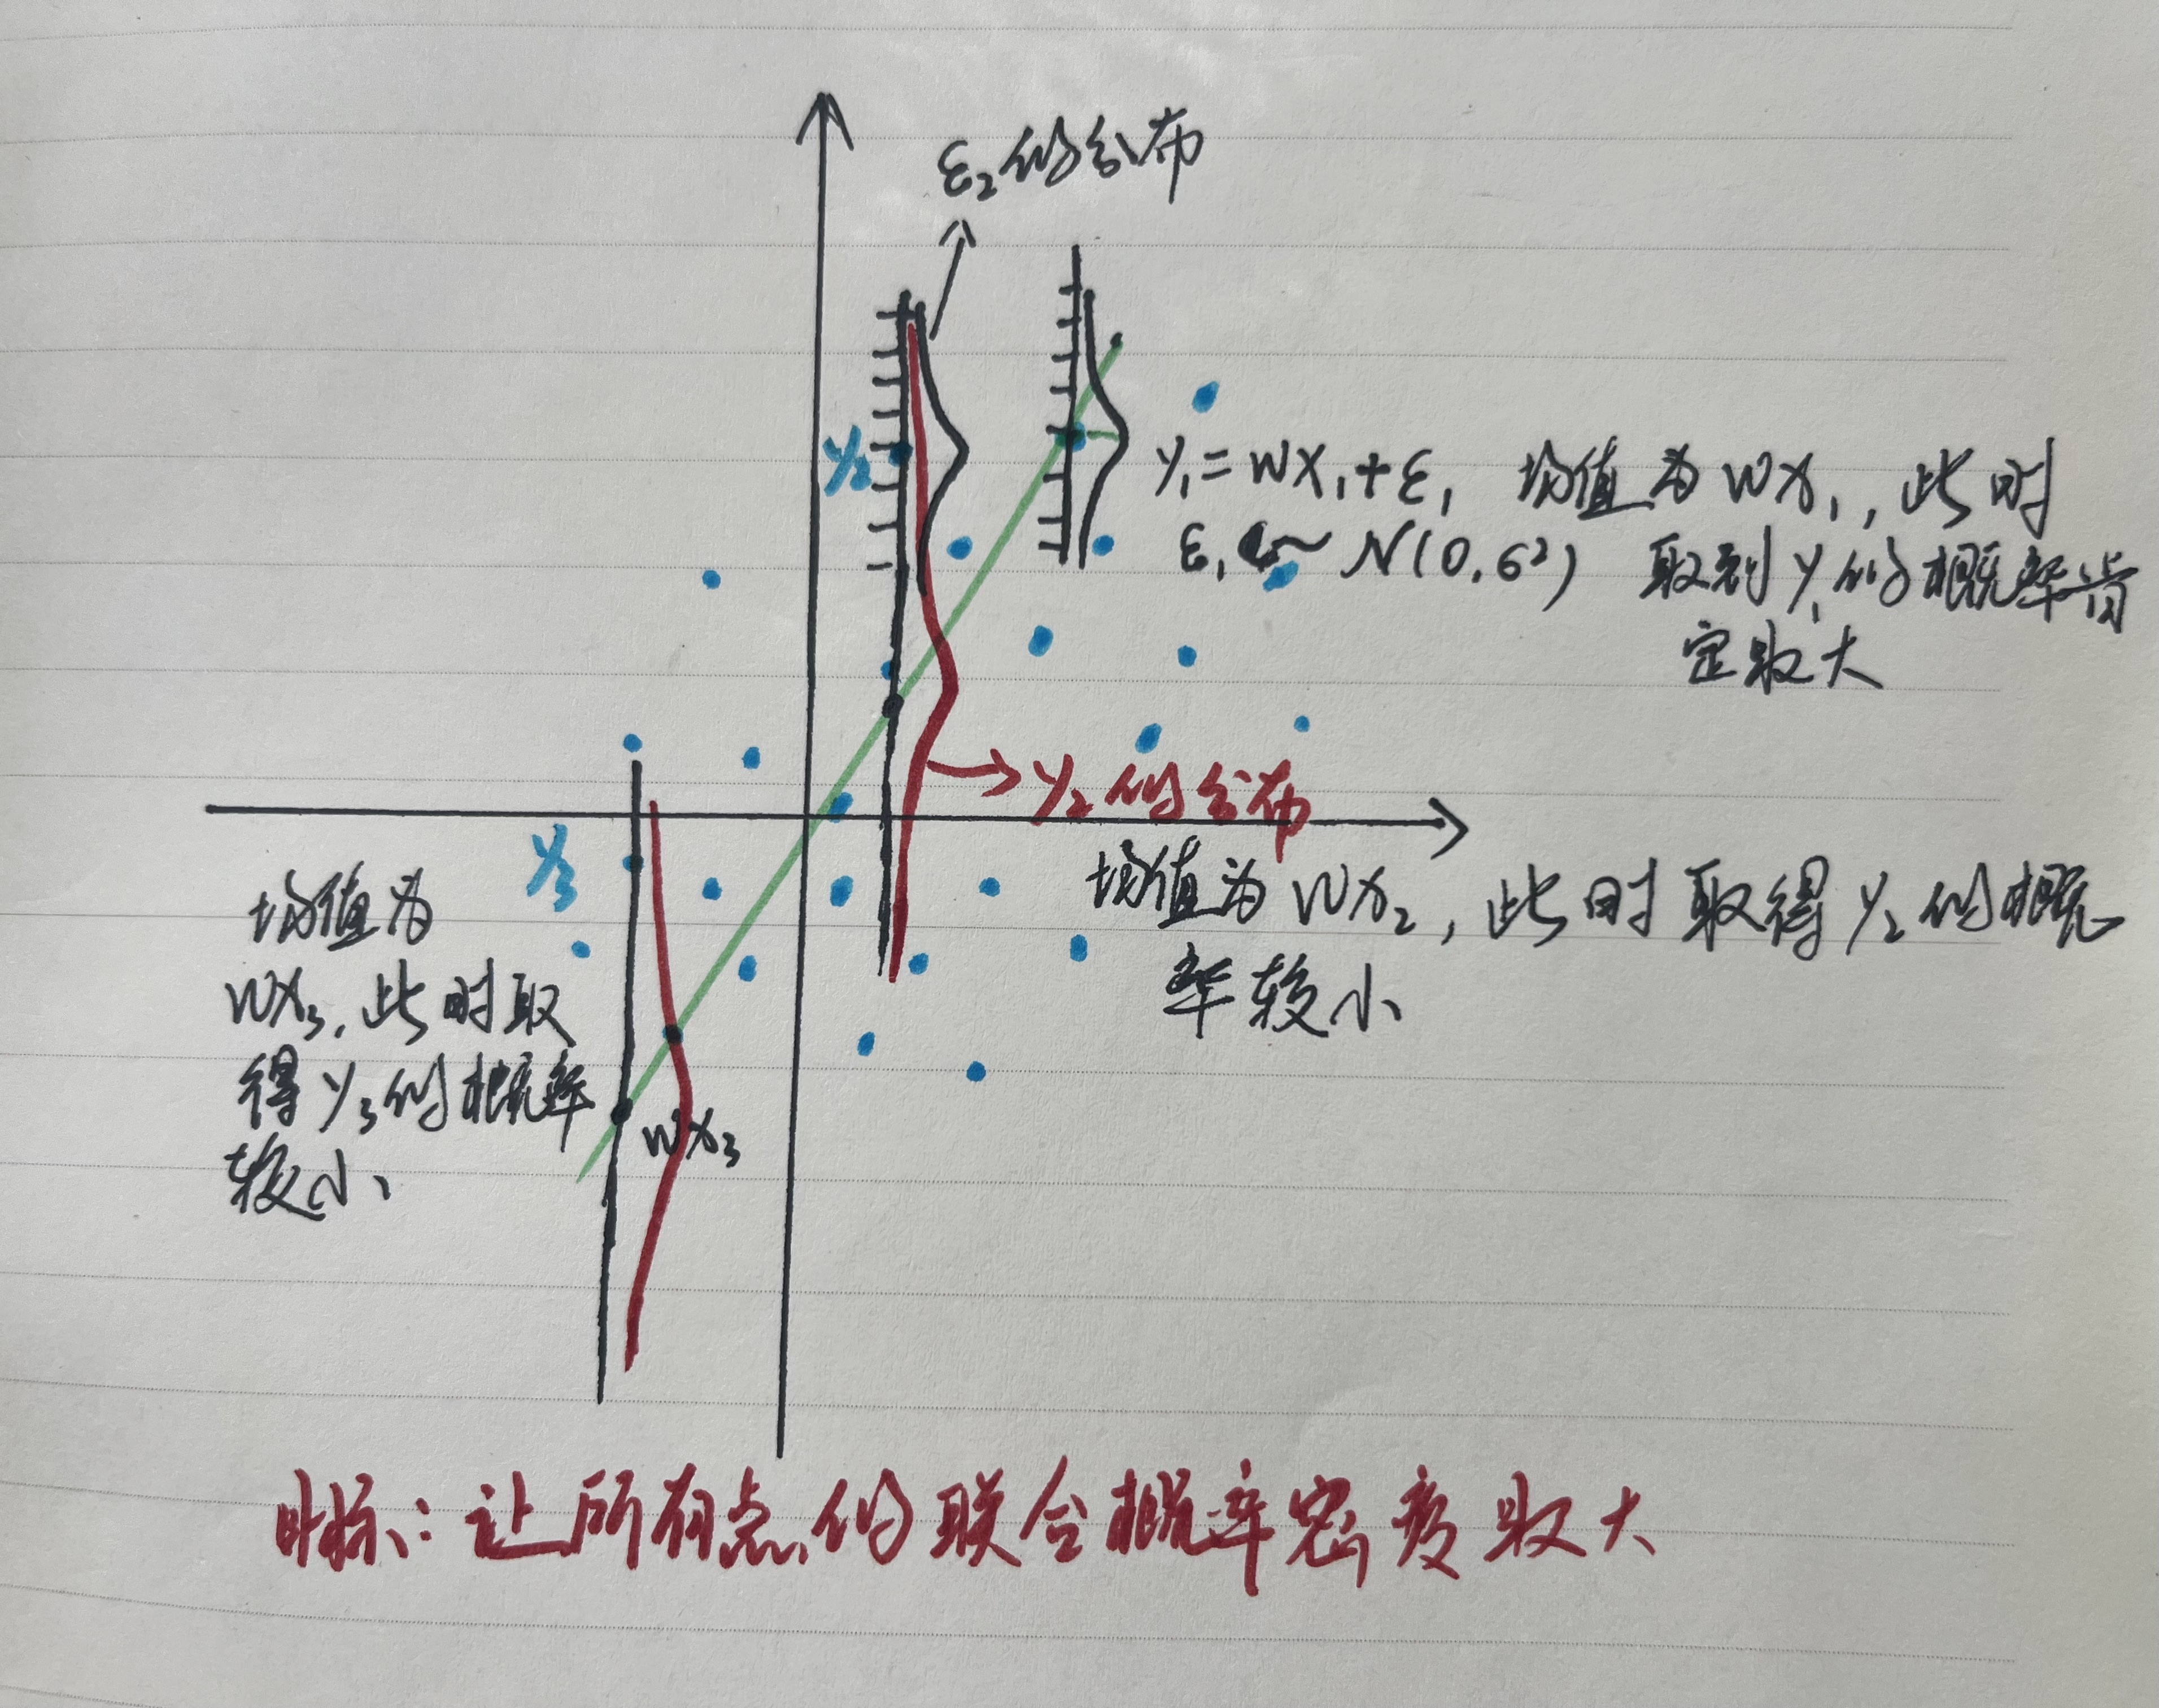 ε₂的分布
y₂
y₁=wx₁+ε₁ 均值为wx₁,此时
ε₁~N(0,σ²) 取到y₁的概率肯
定最大
y₂的分布
均值为wx₂,此时取得y₂的概
率较小
y₃
均值为
wx₃,此时取
得y₃的概率
较小
wx₃
目标:让所有点的联合概率密度最大